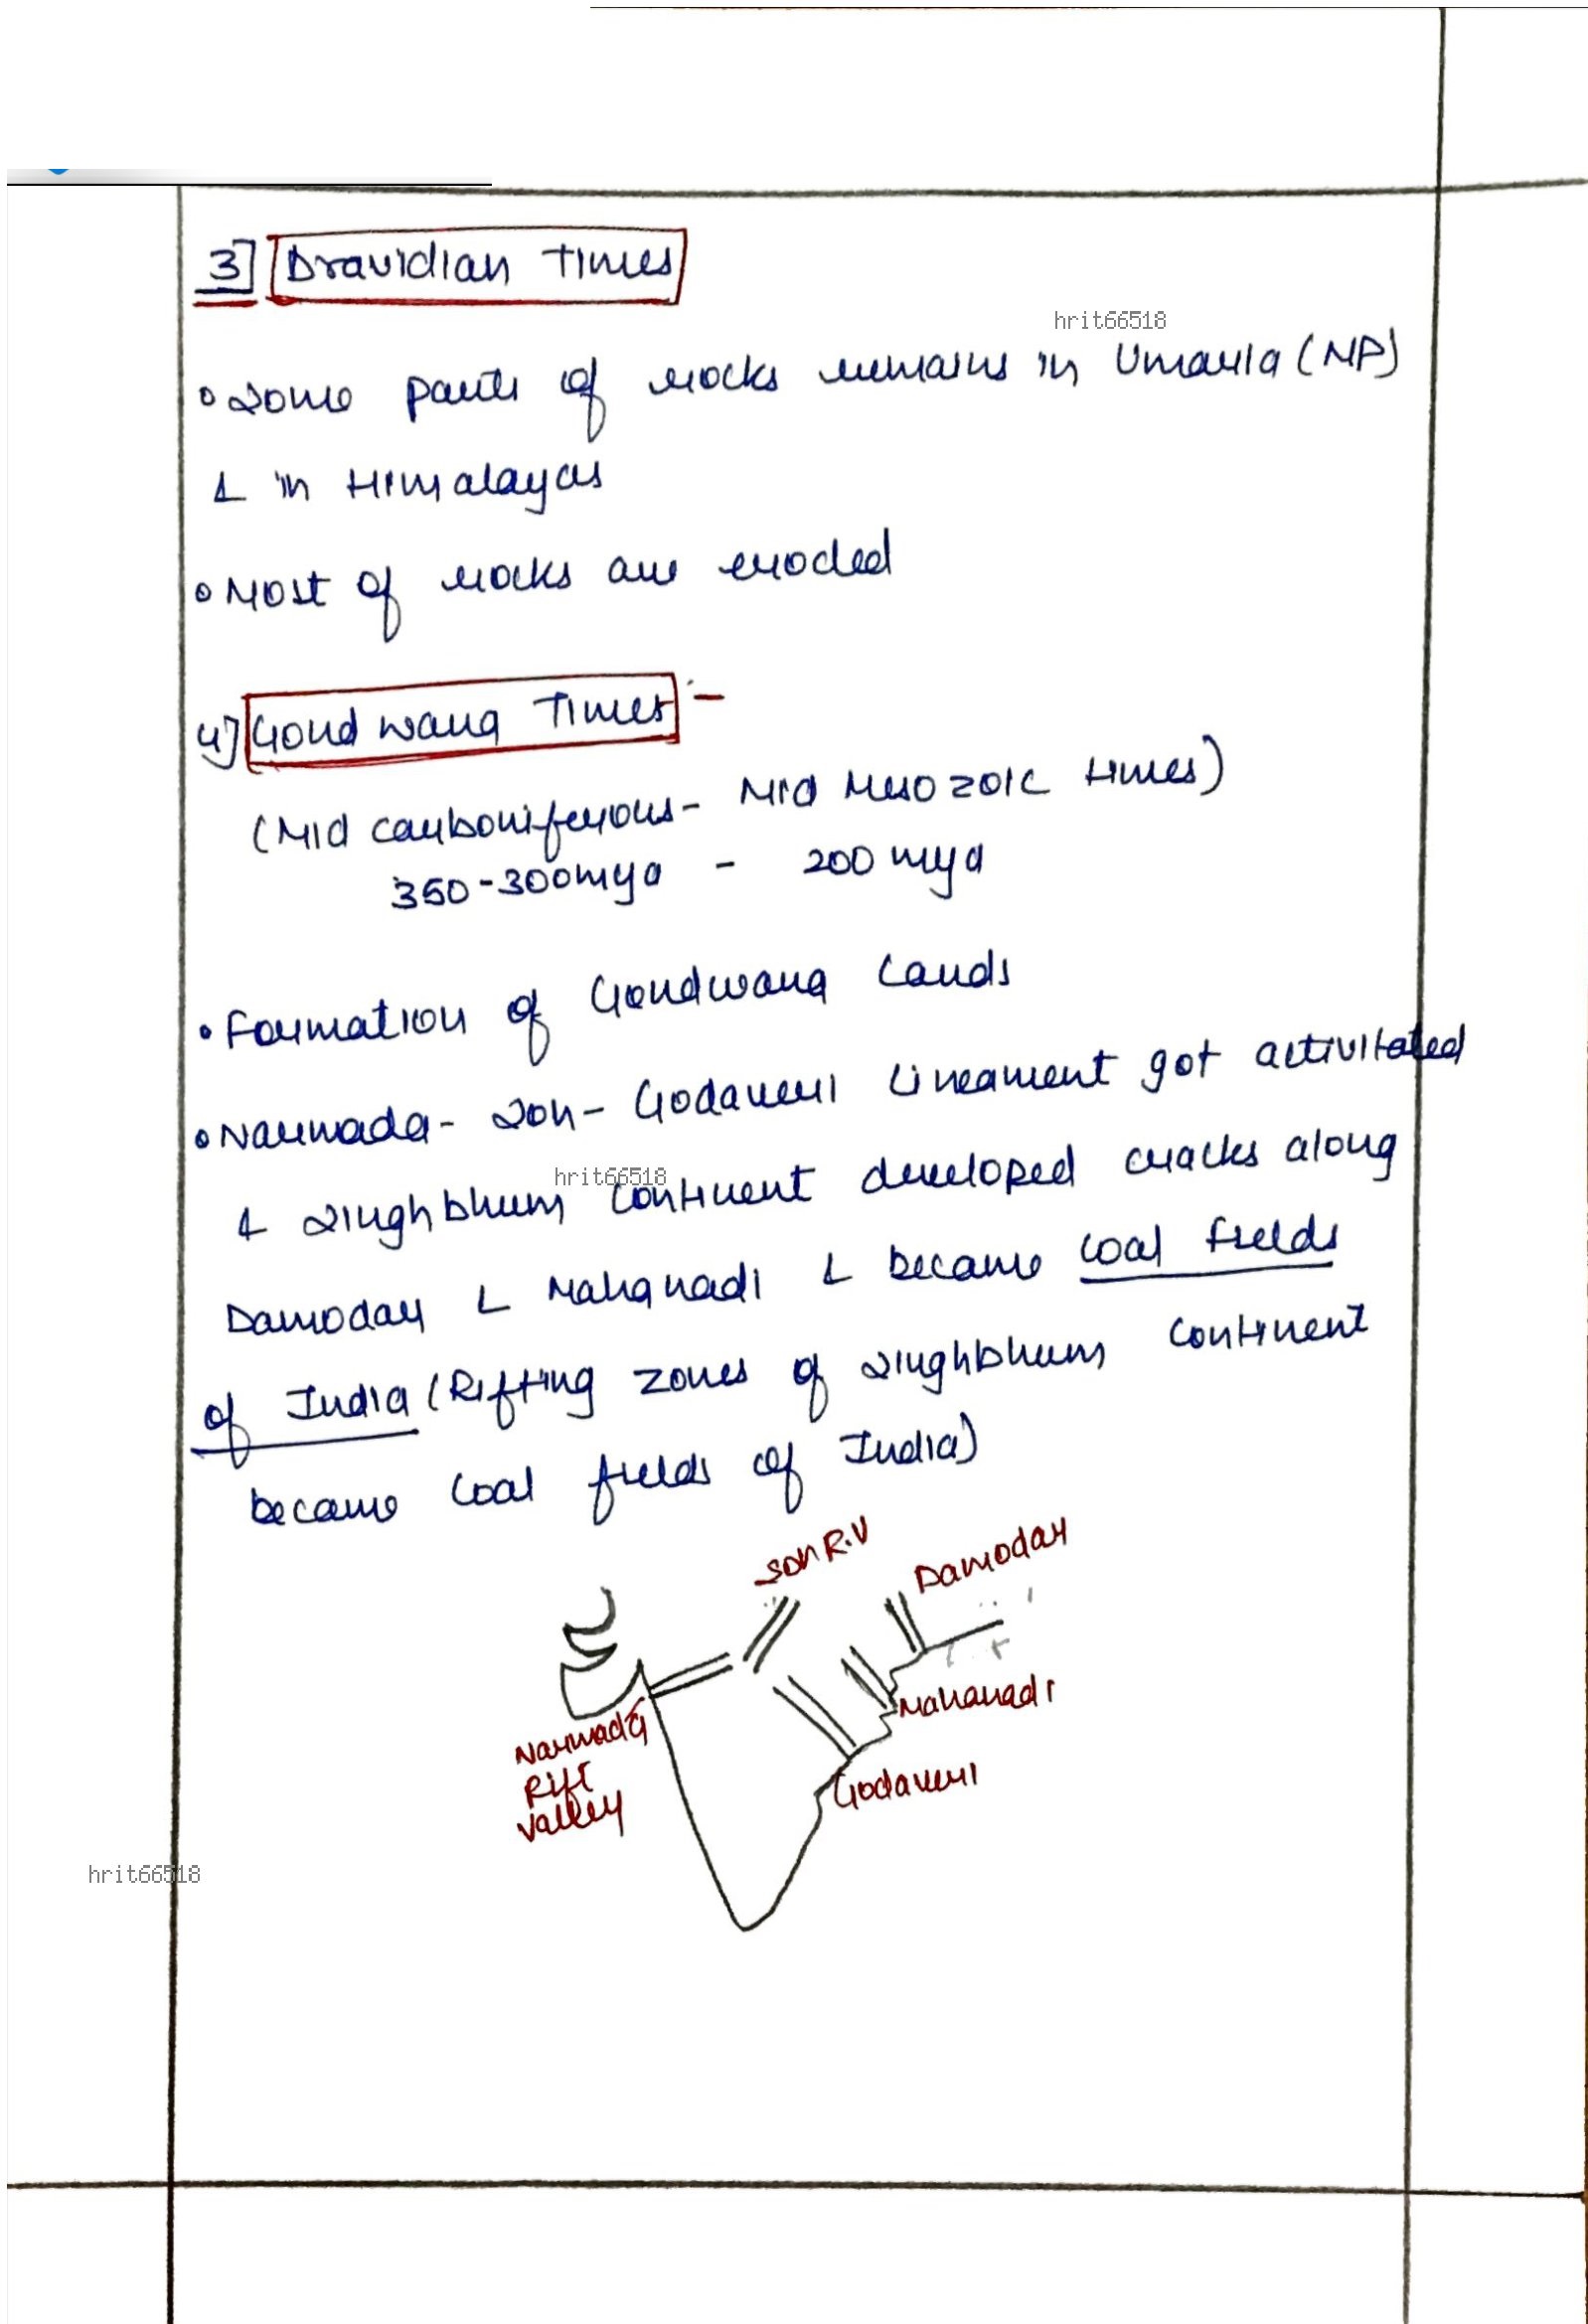 3] Dravidian Times
hrit66518
• Some parts of rocks remains in Umaria (MP)
& in Himalayas
• Most of rocks are eroded
4] Gondwana Times :-
(Mid carboniferous - Mid Mesozoic times)
350-300mya - 200 mya
• Formation of Gondwana Lands
• Narmada - Son - Godaveri Lineament got activitated
hrit66518
& Singhbhum continent developed cracks along
Damodar & Mahanadi & became coal fields
of India (Rifting zones of Singhbhum continent
became coal fields of India)
Son R.V
Damodar
Mahanadi
Narmada
Rift
Valley
Godaveri
hrit66518